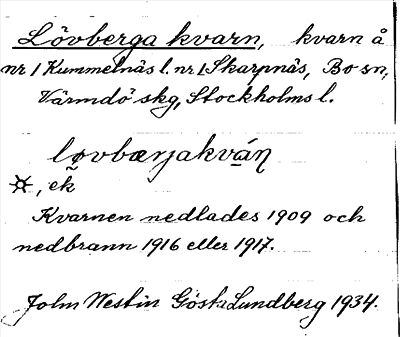 Lövberga kvarn, kvarn å
nr 1 Kummelnäs l. nr 1 Skarpnäs, Bo sn,
Värmdö skg, Stockholms l.
løvbærjakván
¤, ek
Kvarnen nedlades 1909 och
nedbrann 1916 eller 1917.
John Westin Gösta Lundberg 1934.